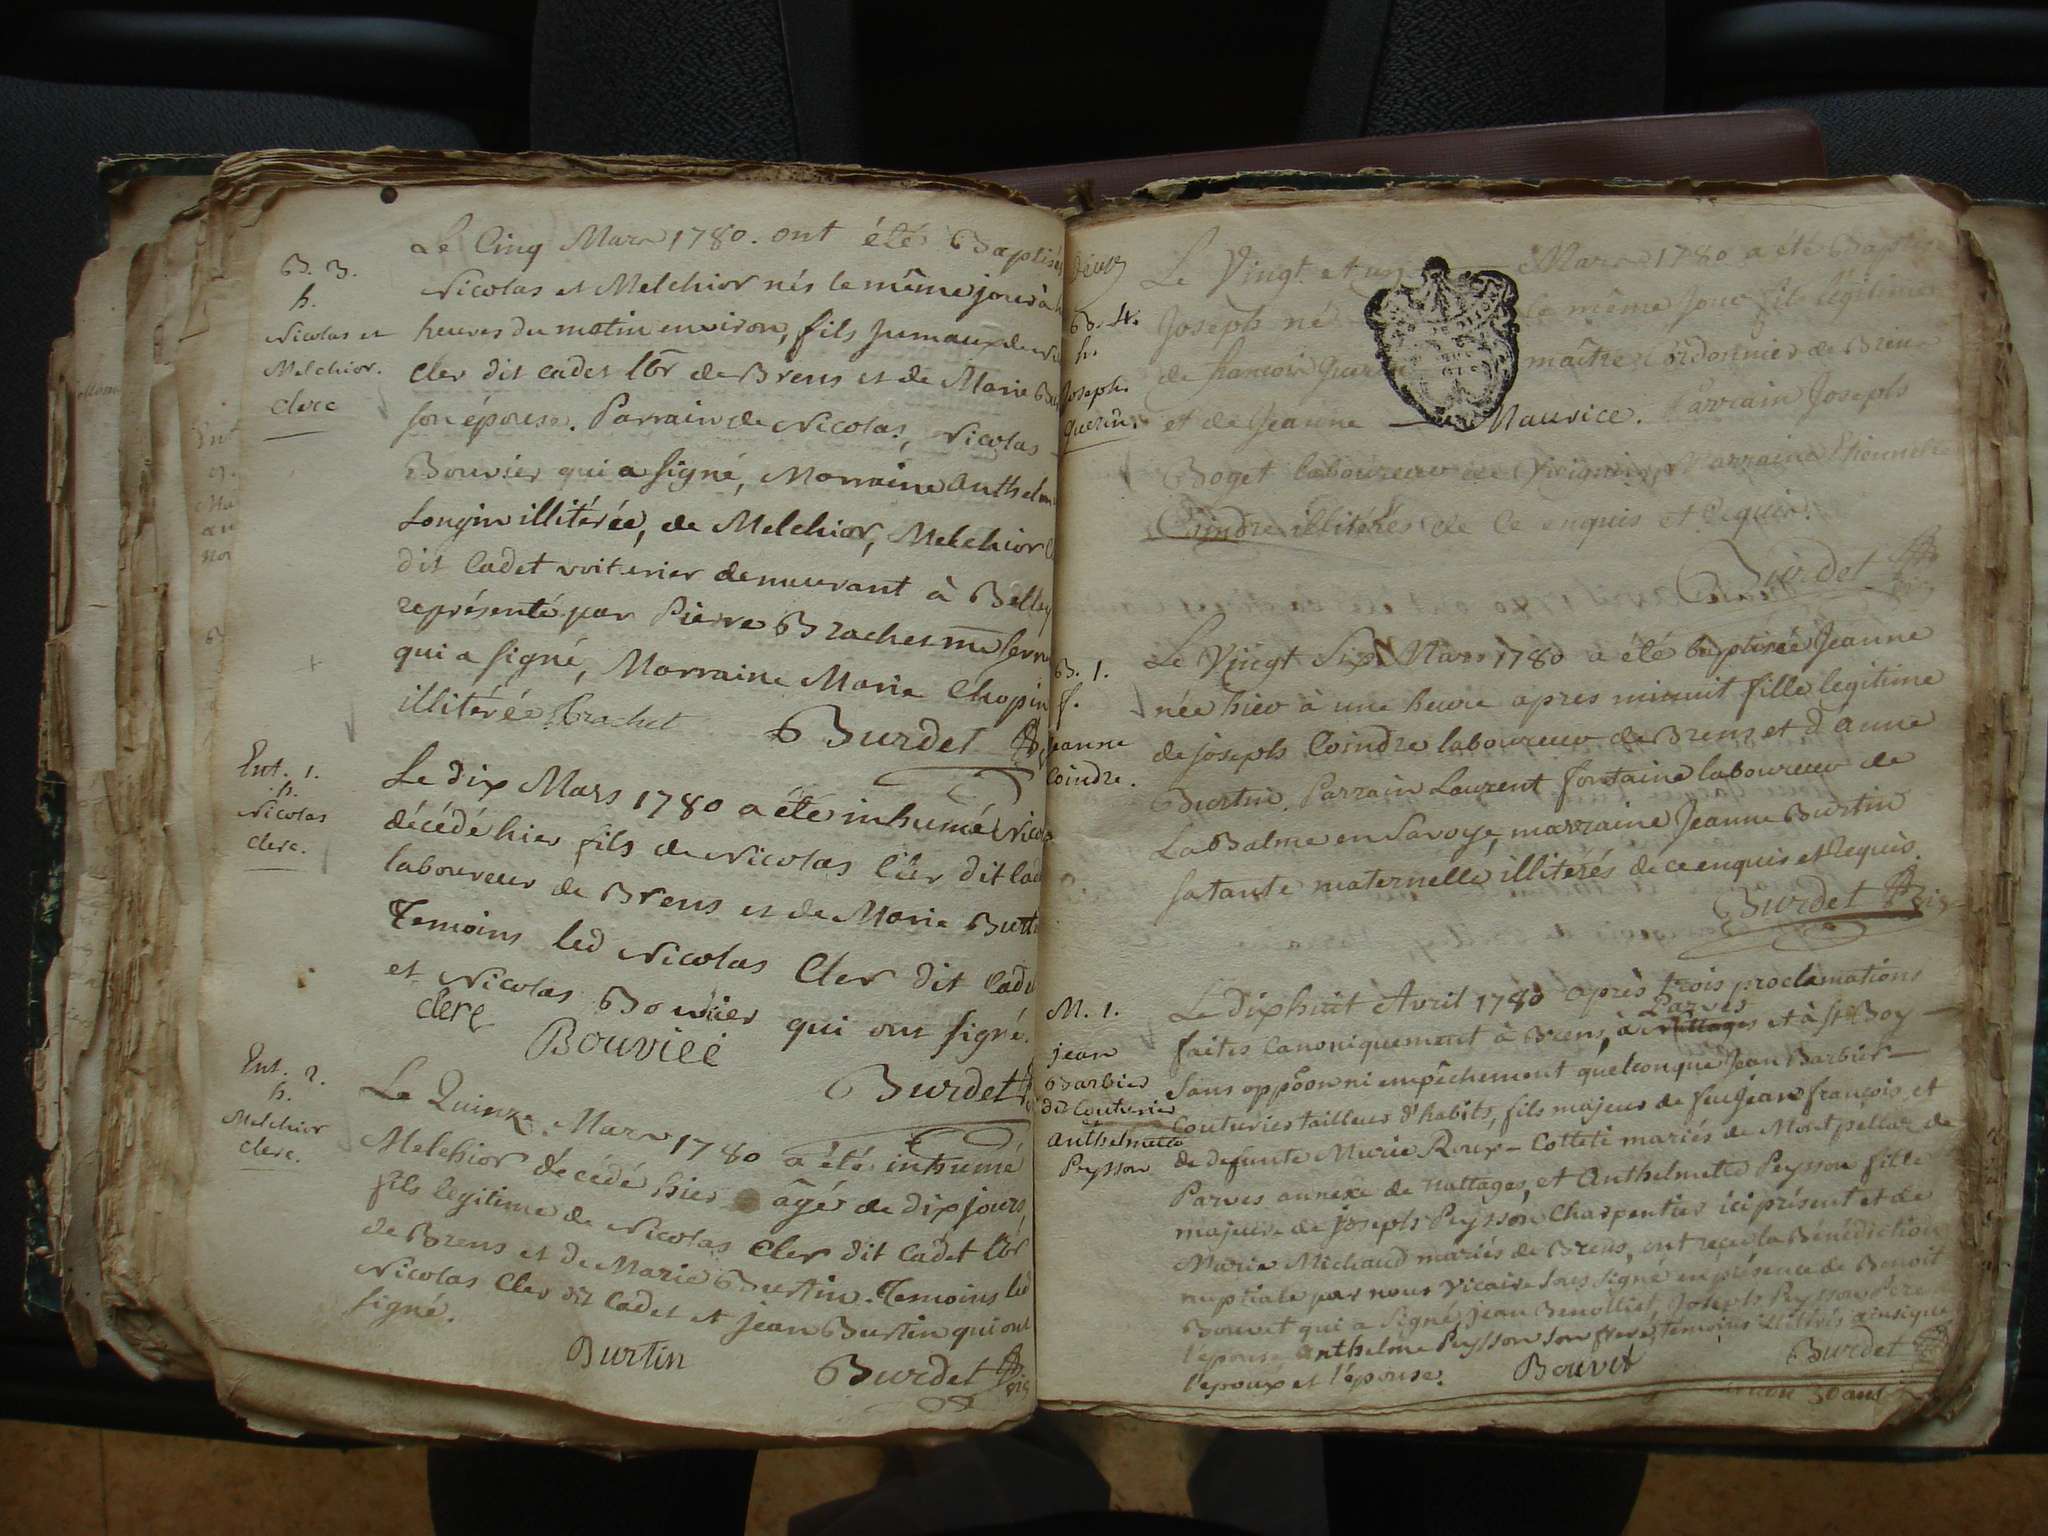 B. 3.
h.
Nicolas et
Melchior.
Clerc
Le Cinq Mars 1780. ont été Baptisés
Nicolas et Melchior nés le même jour à
heures du matin environ, fils Jumaux de
Cler dit Cadet lbr de Brens et de Marie
son épouse. Parrain de Nicolas, Nicolas
Bouvier qui a signé, Marraine Anthelm
Longin illitérée, de Melchior, Melchior
dit Cadet voiturier demeurant à Belley
représenté par Pierre Brachet me
qui a signé, Marraine Marie Chapin
illitérée Brachet Burdet
Ent. 1.
h.
Nicolas
clerc.
Le dix Mars 1780 a été inhumé Nicolas
décédé hier fils de Nicolas Cler dit Cad
laboureur de Brens et de Marie Burt
Temoins led Nicolas Cler dit Cade
et Nicolas Bouvier qui ont signé.
clerc Bouvier
Burdet
Ent. 2.
h.
Melchior
clerc.
Le Quinze Mars 1780 a été inhumé
Melchior décédé hier âgé de dix jours,
fils legitime de Nicolas Cler dit Cadet lbr
de Brens et de Marie Burtin. Temoins led
Nicolas Cler dit Cadet et jean Burtin qui ont
signé.
Burtin Burdet
B. 4.
h.
Joseph.
Guerin.
Le Vingt et un Mars 1780 a été Baptisé
Joseph né le même jour fils légitime
de francois Guerin maître Cordonnier de Brens
et de Jeanne Maurice. Parrain Joseph
Boget laboureur de Marraine
Coindre illiterés de ce enquis et requis.
Burdet
B. 1.
f.
Jeanne
Coindre.
Le Vingt Six Mars 1780 a été baptisée Jeanne
née hier à une heure apres minuit fille legitime
de joseph Coindre laboureur de Brens et d'anne
Burtin. Parrain Laurent fontaine laboureur de
La Balme en Savoye, marraine Jeanne Burtin
sa tante maternelle illiterés de ce enquis et requis.
Burdet
M. 1.
jean
Barbier
dit Couturier
Anthelmette
Peysson
Le Dixhuit Avril 1780 après trois proclamations
Parves
faites canoniquement à Brens, à Nattages et à St Boy
sans oppôon ni empêchement quelconque Jean Barbier
Couturier tailleur d'habits, fils majeur de feu Jean françois et
de defunte Marie Roux Cotteti mariés de Montpellaz de
Parves annexe de nattages, et Anthelmette Peysson fille
majeure de joseph Peysson Charpentier ici présent et de
Marie Michaud mariés de Brens, ont reçu la Bénédiction
nuptiale par nous Vicaire soussigné en présence de Benoit
Bouvet qui a signé, Jean Benollier, Joseph Peysson Père
l'épouse, Anthelme Peysson son frere, temoins illitérés ainsi que
l'époux et l'épouse. Bouvet Burdet
30 ans